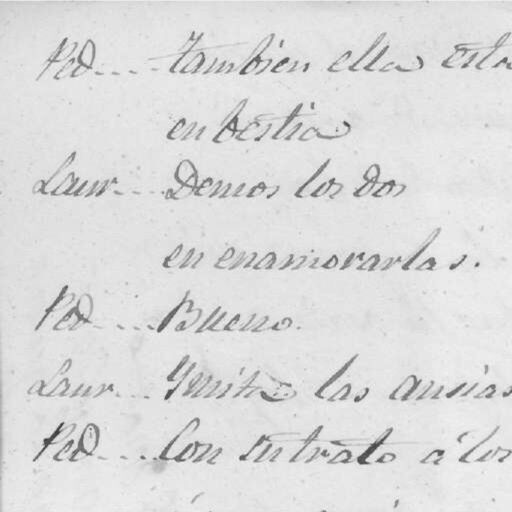 Ped.... tambien ella esta
en bestia
Laur... Demos los dos
en enamorarlas.
Ped.... Bueno.
Laur... las ansias
Ped.... Con su trato á los